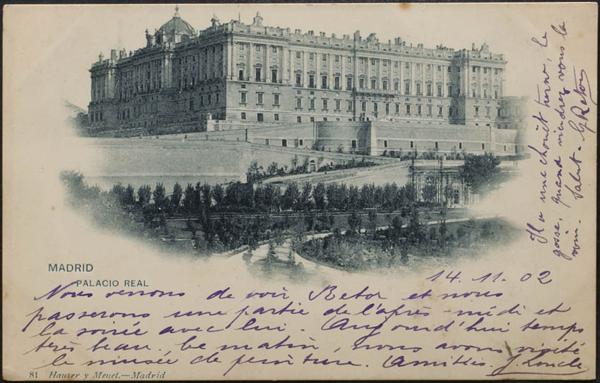 MADRID
PALACIO REAL
14.11.02
Nous venons de voir Retor et nous
passerons une partie de l'après-midi et
la soirée avec lui. Aujourd'hui temps
très beau. Ce matin, nous avons visité
le musée de peinture. Amitiés. J.
81 Hauser y Menet.—Madrid
Il a une chouette, le
gosse, quand viendrez vous la
voir. Salut. G. Retor